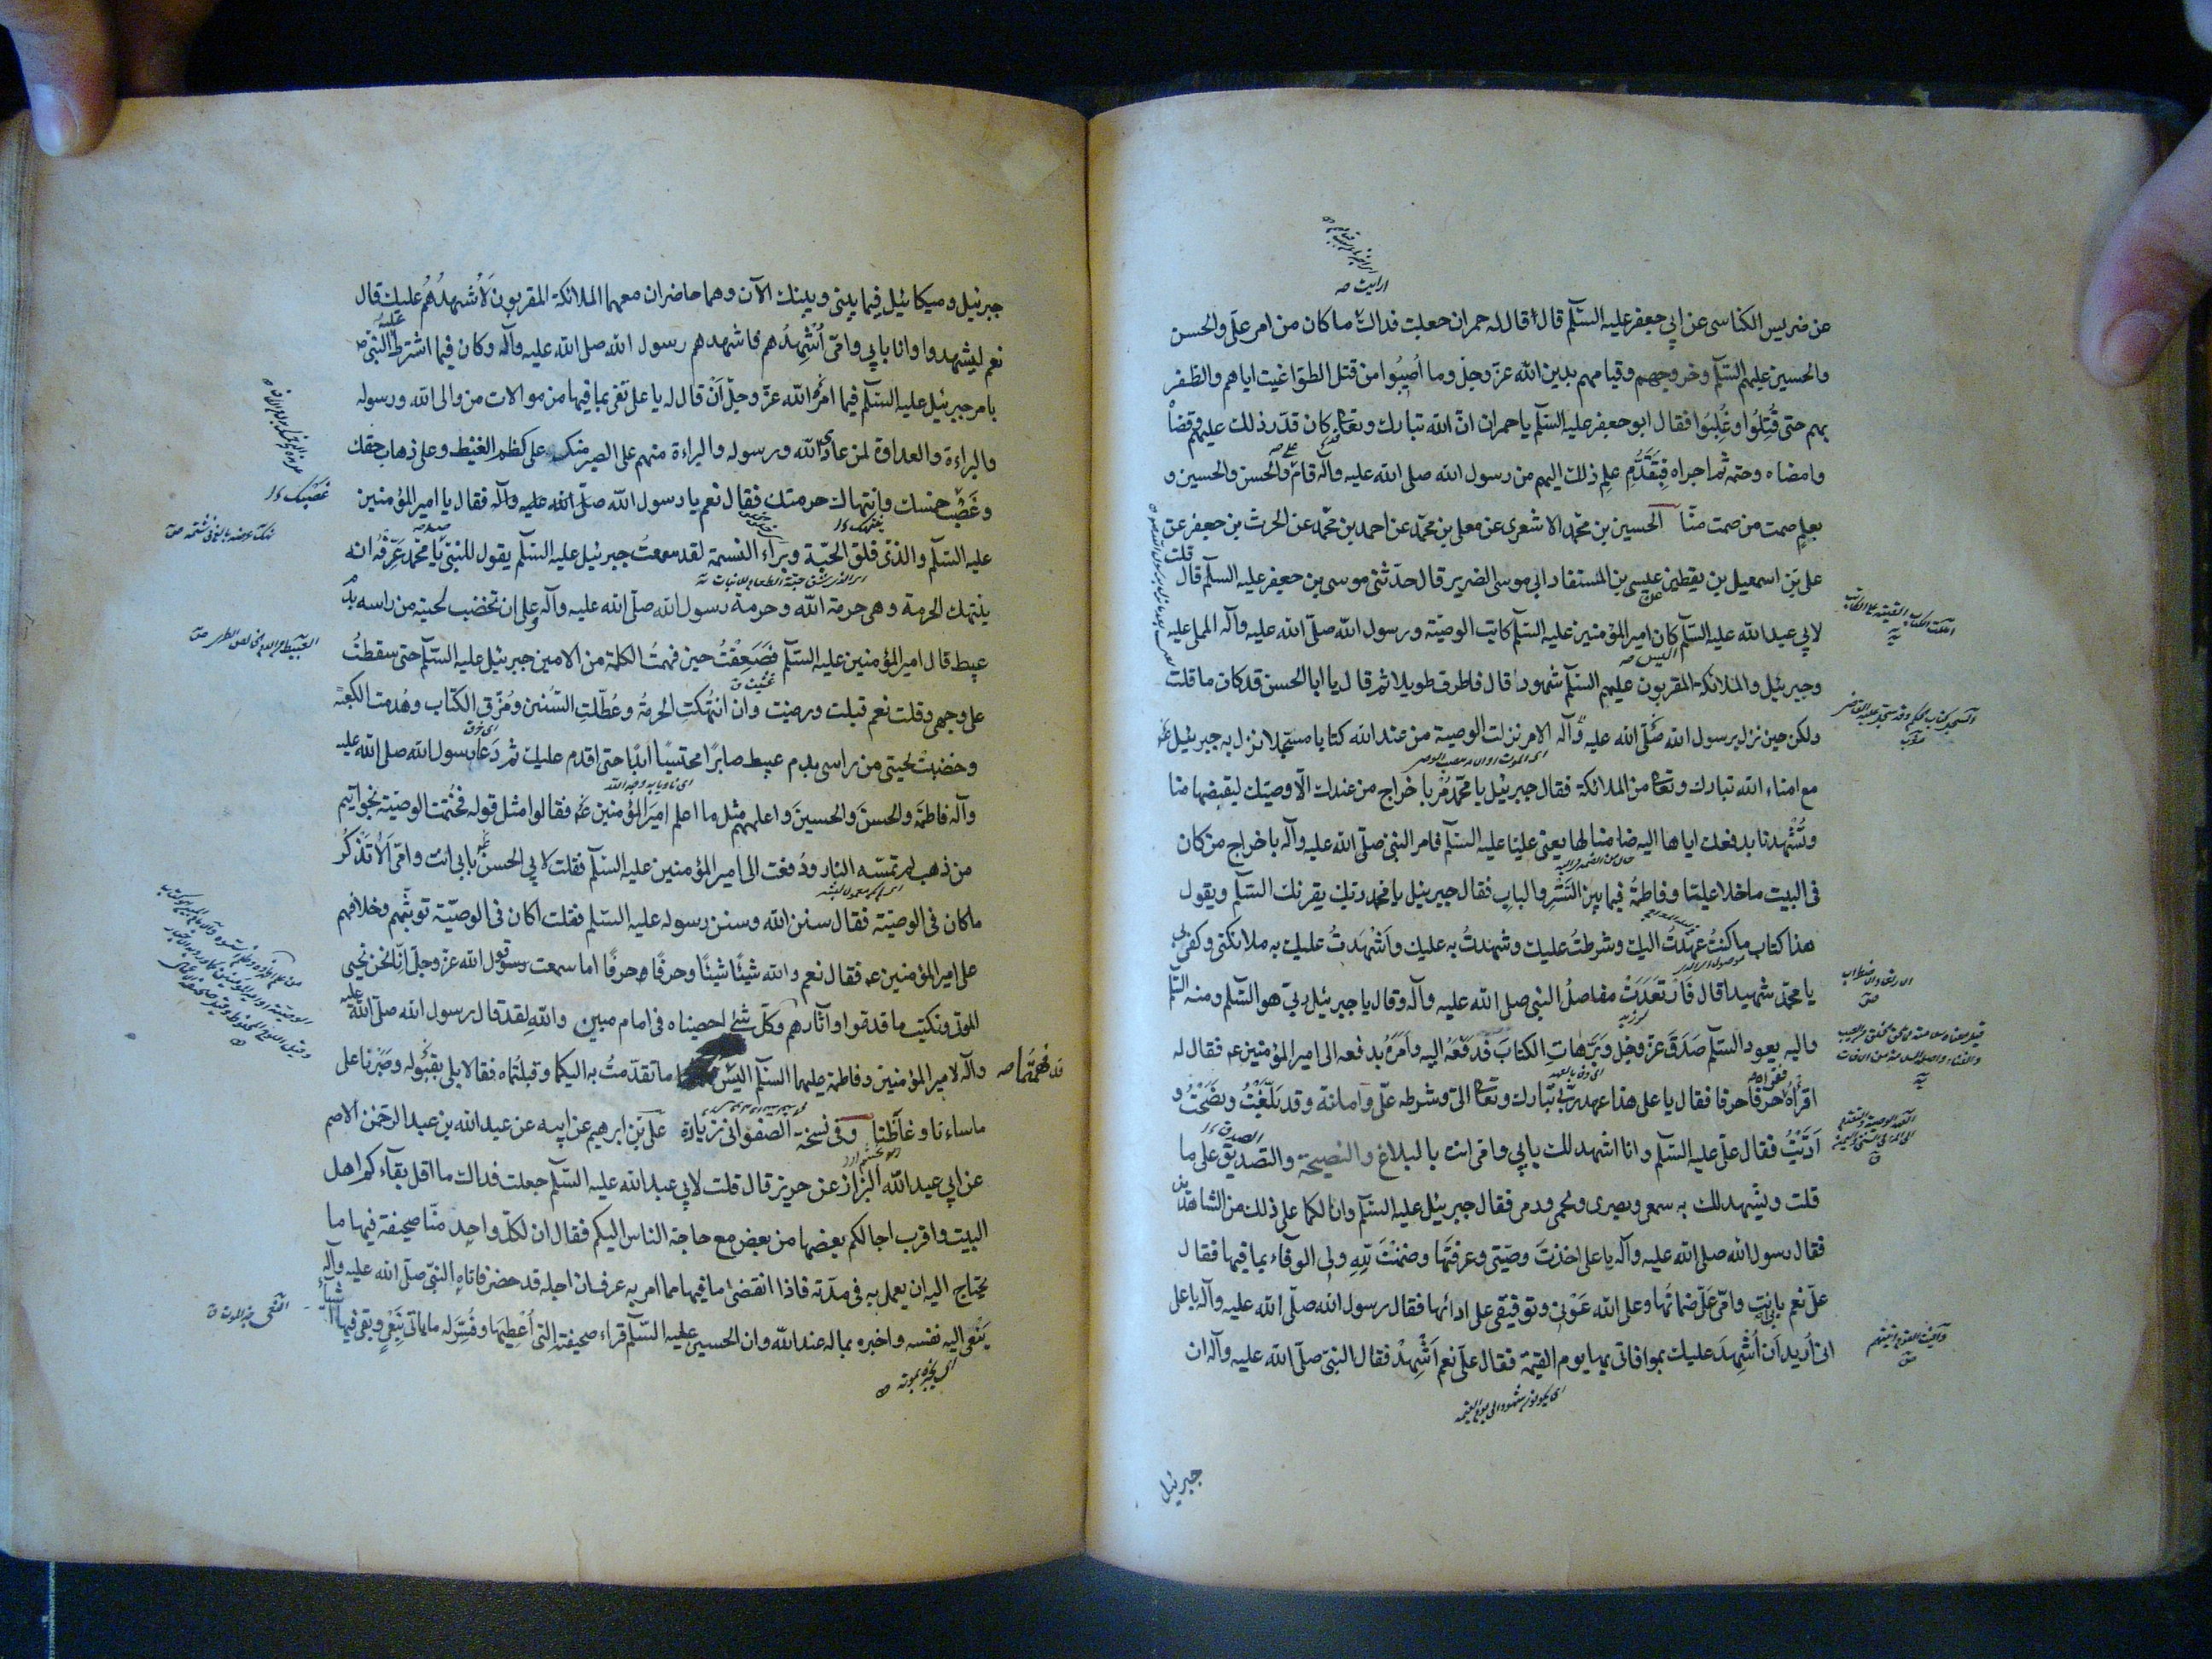 عن ضريس الكناسى عن ابي جعفر عليه السّلم قال قال له حمران جعلت فداك ارايت ما كان من امر علىّ والحسن
والحسين عليهم السّلم وخروجهم وقيامهم بدين الله عزّ وجلّ وما اُصيبُوا من قتل الطواغيت اياهم والظفر
بهم حتى قُتِلُوا وغُلِبُوا فقال ابو جعفر عليه السّلم يا حمران انّ الله تبارك وتعا كان قدّر ذلك عليهم وقضاه
وامضاه وحتمه ثم اجراه فبِتَقَدُّمِ علمِ ذلك اليهم من رسول الله صلى الله عليه وآله قام علىّ والحسن والحسين و
بعلمٍ صمت من صمت منّا الحسين بن محمّد الاشعرى عن معلى بن محمّد عن احمد بن محمّد عن الحرث بن جعفر عن
على بن اسمعيل بن يقطين عن عيسى بن المستفاد ابي موسى الضرير قال حدّثنى موسى بن جعفر عليه السلم قال قلت
لابي عبد الله عليه السّلم اليس كان امير المؤمنين عليه السّلم كاتب الوصيّة ورسول الله صلّى الله عليه وآله المملى عليه
وجبرئيل والملائكة المقربون عليهم السّلم شهود قال فاطرق طويلا ثم قال يا ابا الحسن قد كان ما قلت
ولكن حين نزل برسول الله صلّى الله عليه وآله الامر نزلت الوصية من عند الله كتابا مسجّلا نزل به جبرئيل
مع امناء الله تبارك وتعا من الملائكة فقال جبرئيل يا محمّد مُرْ باخراج من عندك الّا وصيّك ليقبضها منا
وتُشْهِدنا بدفعك اياها اليه ضامنا لها يعنى عليّا عليه السّلم فامر النبى صلّى الله عليه وآله باخراج من كان
فى البيت ما خلا عليّا وفاطمةُ فيما بين السّتر والباب فقال جبرئيل يا محمّد ربّك يقرئك السّلم ويقول
هذا كتاب ما كنتُ عهدتُ اليك وشرطتُ عليك وشهدتُ به عليك واَشهَدتُ عليك به ملائكتى وكفى بي
يا محمّد شهيدا قال فارتعَدَتْ مفاصلُ النبى صلى الله عليه وآله وقال يا جبرئيل ربى هو السّلم ومنه السّلم
واليه يعود السّلم صَدَقَ عزّ وجلّ وبَرَّ هاتِ الكتابَ فدفَعَهُ اليه واَمَرَهُ بدفعه الى امير المؤمنين عم فقال له
اقراه فقراه حرفا حرفا فقال يا على هذا عهد ربّى تبارك وتعا الىّ وشرطه علىّ وامانة وقد بلّغْتُ ونصَحْتُ و
اَدّيْتُ فقال علىّ عليه السّلم وانا اشهد لك بابي وامى انت بالبلاغ والنصيحة والتصديق على ما
قلت ويشهد لك به سمعى وبصرى ولحمى ودمى فقال جبرئيل عليه السّلم وانا لكما على ذلك من الشاهدين
فقال رسول الله صلى الله عليه وآله يا على اخذتَ وصيّتى وعرفتَها وضمنْتَ لِلّهِ ولى الوفاء بما فيها فقال
علىّ نعم بابي انت وامّى علىّ ضمانُها وعلى الله عَوْنى وتوفيقى على ادائها فقال رسول الله صلّى الله عليه وآله يا على
انى اُريد اَن اُشْهِدَ عليك بموافاتى بها يوم القيمة فقال علىّ نعم اَشْهِدْ فقال النبىّ صلّى الله عليه وآله ان
اى يكونون شهودا الى يوم القيمه
جبرئيل
جبرئيل وميكائيل فيما بينى وبينك الآن وهما حاضران معهما الملائكة المقربون لَاُشهِدُهُم عليك قال
نعم ليشهدوا وانا بابي وامّى اُشهِدُهم فاشهدهم رسول الله صلى الله عليه وآله وكان فيما اشترط عليه النبى
بامر جبرئيل عليه السّلم فيما امره الله عزّ وجلّ اَنْ قال له يا على تَفى بما فيها من موالات من والى الله ورسوله
والبراءة والعداوة لمن عادى الله ورسوله والبراءة منهم على الصبر منك على كظم الغيظ وعلى ذهاب حقك
وغَصْب خمسك وانتهاك حرمتك فقال نعم يا رسول الله صلّى الله عليه وآله فقال يا امير المؤمنين
عليه السّلم والّذى فلق الحبّة وبَرَاء النسمة لقد سمعتُ جبرئيل عليه السّلم يقول للنبىّ يا محمّد عَرِّفْهُ انه
ينتهك الحرمة وهى حرمة الله وحرمة رسول الله صلّى الله عليه وآله وعلى ان تخضب لحيته من راسه بدم
عبيط قال امير المؤمنين عليه السّلم فصَعِقْتُ حين فهمتُ الكلمة من الامين جبرئيل عليه السّلم حتى سقطتُ
على وجهى وقلت نعم قبلت ورضيت وان انتُهِكتِ الحرمةُ وعُطّلتِ السّنن ومُزّق الكتاب وهُدمت الكعبة
وخضبت لحيتى من راسى بدم عبيط صابرًا محتسبًا ابدًا حتى اقدم عليك ثم دَعا رسول الله صلى الله عليه
وآله فاطمةَ والحسنَ والحسينَ واعلمهم مثل ما اعلم اميرَ المؤمنين فقالوا مثل قوله فخُتمت الوصيّة بخواتيم
من ذهب لم تمسّه النار ودُفعت الى امير المؤمنين عليه السّلم فقلت لابي الحسن بابي انت وامى اَلا تَذْكُرُ
ما كان فى الوصيّة فقال سنن الله وسنن رسوله عليه السّلم فقلت اكان فى الوصيّة توثّبهم وخلافهم
على امير المؤمنين عم فقال نعم والله شيئًا شيئًا وحرفًا حرفًا اما سمعت قول الله عزّ وجلّ انّا نحن نحيى
الموتى ونكتب ما قدموا وآثارهم وكلّ شئ احصيناه فى امام مبين واللهِ لقد قال رسول الله صلّى الله عليه
وآله لامير المؤمنين وفاطمة عليهما السّلم اليس قد فهمتما ما تقدّمتُ به اليكما وقبلتُماه فقالا بلى بقبُوله وصَبَرنا على
ما ساءنا وغاظَنا وفى نسخة الصفوانى زيادة على بن ابرهيم عن ابيه عن عبد الله بن عبد الرحمن الاصم
عن ابي عبد الله البزاز عن حريز قال قلت لابي عبد الله عليه السّلم جعلت فداك ما اقل بقآءكم اهل
البيت واقرب اجالكم بعضها من بعض مع حاجة الناس اليكم فقال ان لكلّ واحِد منّا صحيفة فيها ما
يحتاج اليه ان يعمل به فى مدّته فاذا انقضى ما فيها مما امر به عرف ان اجله قد حضر فاتاه النبىّ صلّى الله عليه وآله
يَنْعى اليه نفسه واخبره بما له عند الله وان الحسين عليه السّلم قراء صحيفته التى اُعْطِيَها وفُسّر له ما ياتى بِنَعْىٍ وبقى فيها اشياءُ
اى يخبره بموته